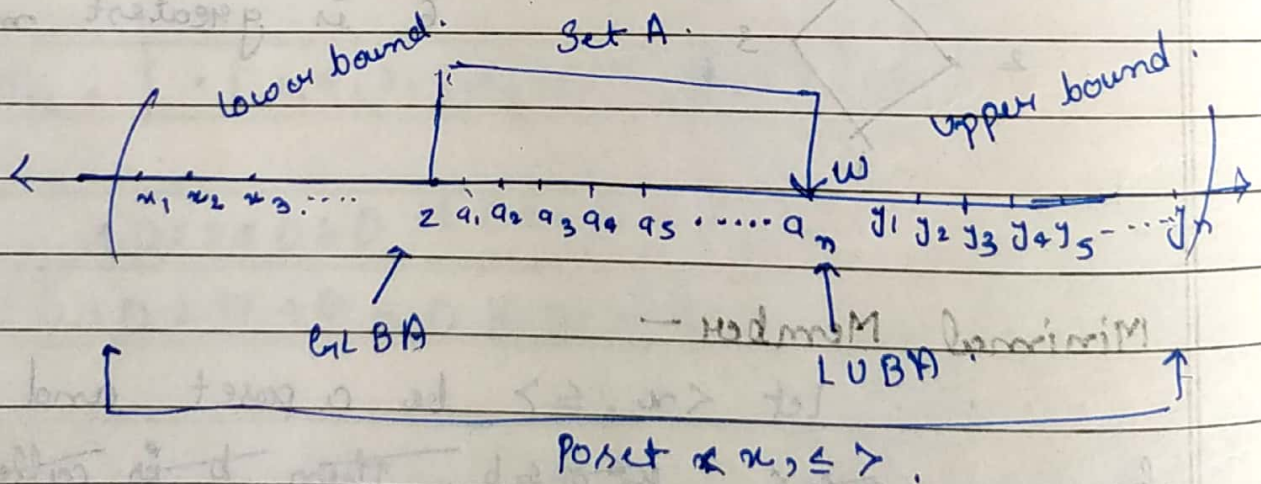 Set A.
lower bound.
upper bound.
w
x1 x2 x3..... z a1 a2 a3 a4 a5 ...... an y1 y2 y3 y4 y5---- yn
GLBA
LUBA
Poset < x, ≤ >.